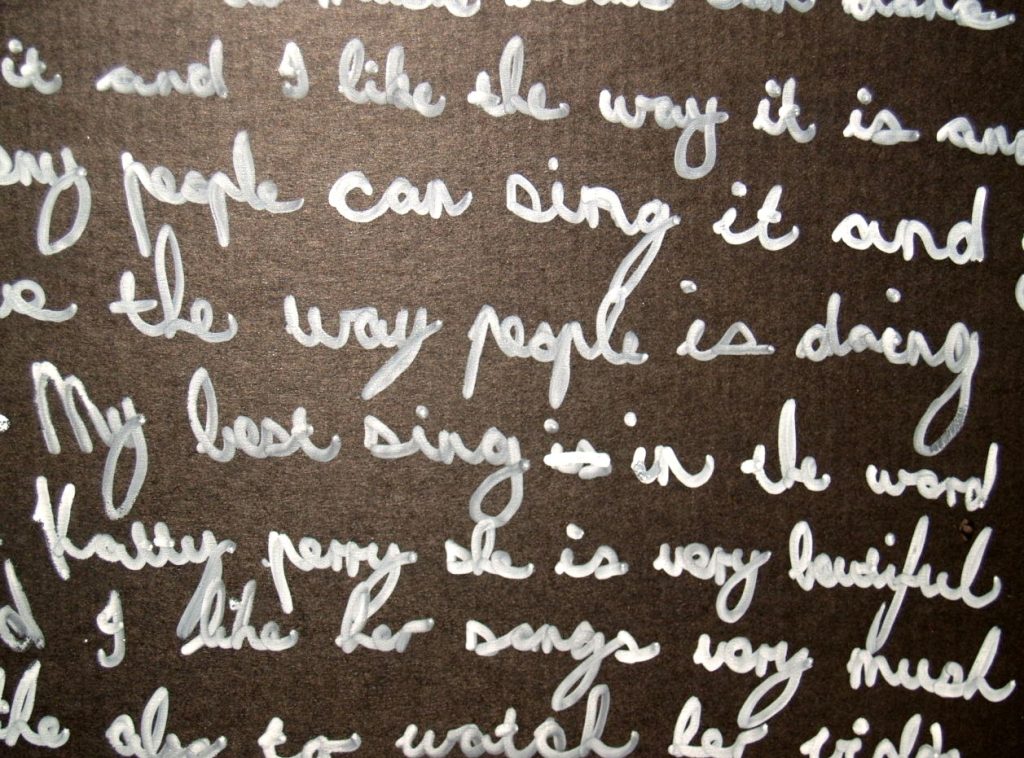 can
it and I like the way it is an
people can sing it and
the way people is doing
My best sing is in the word
Katty perry she is very beautiful
I like her songs very mush
the also to watch her